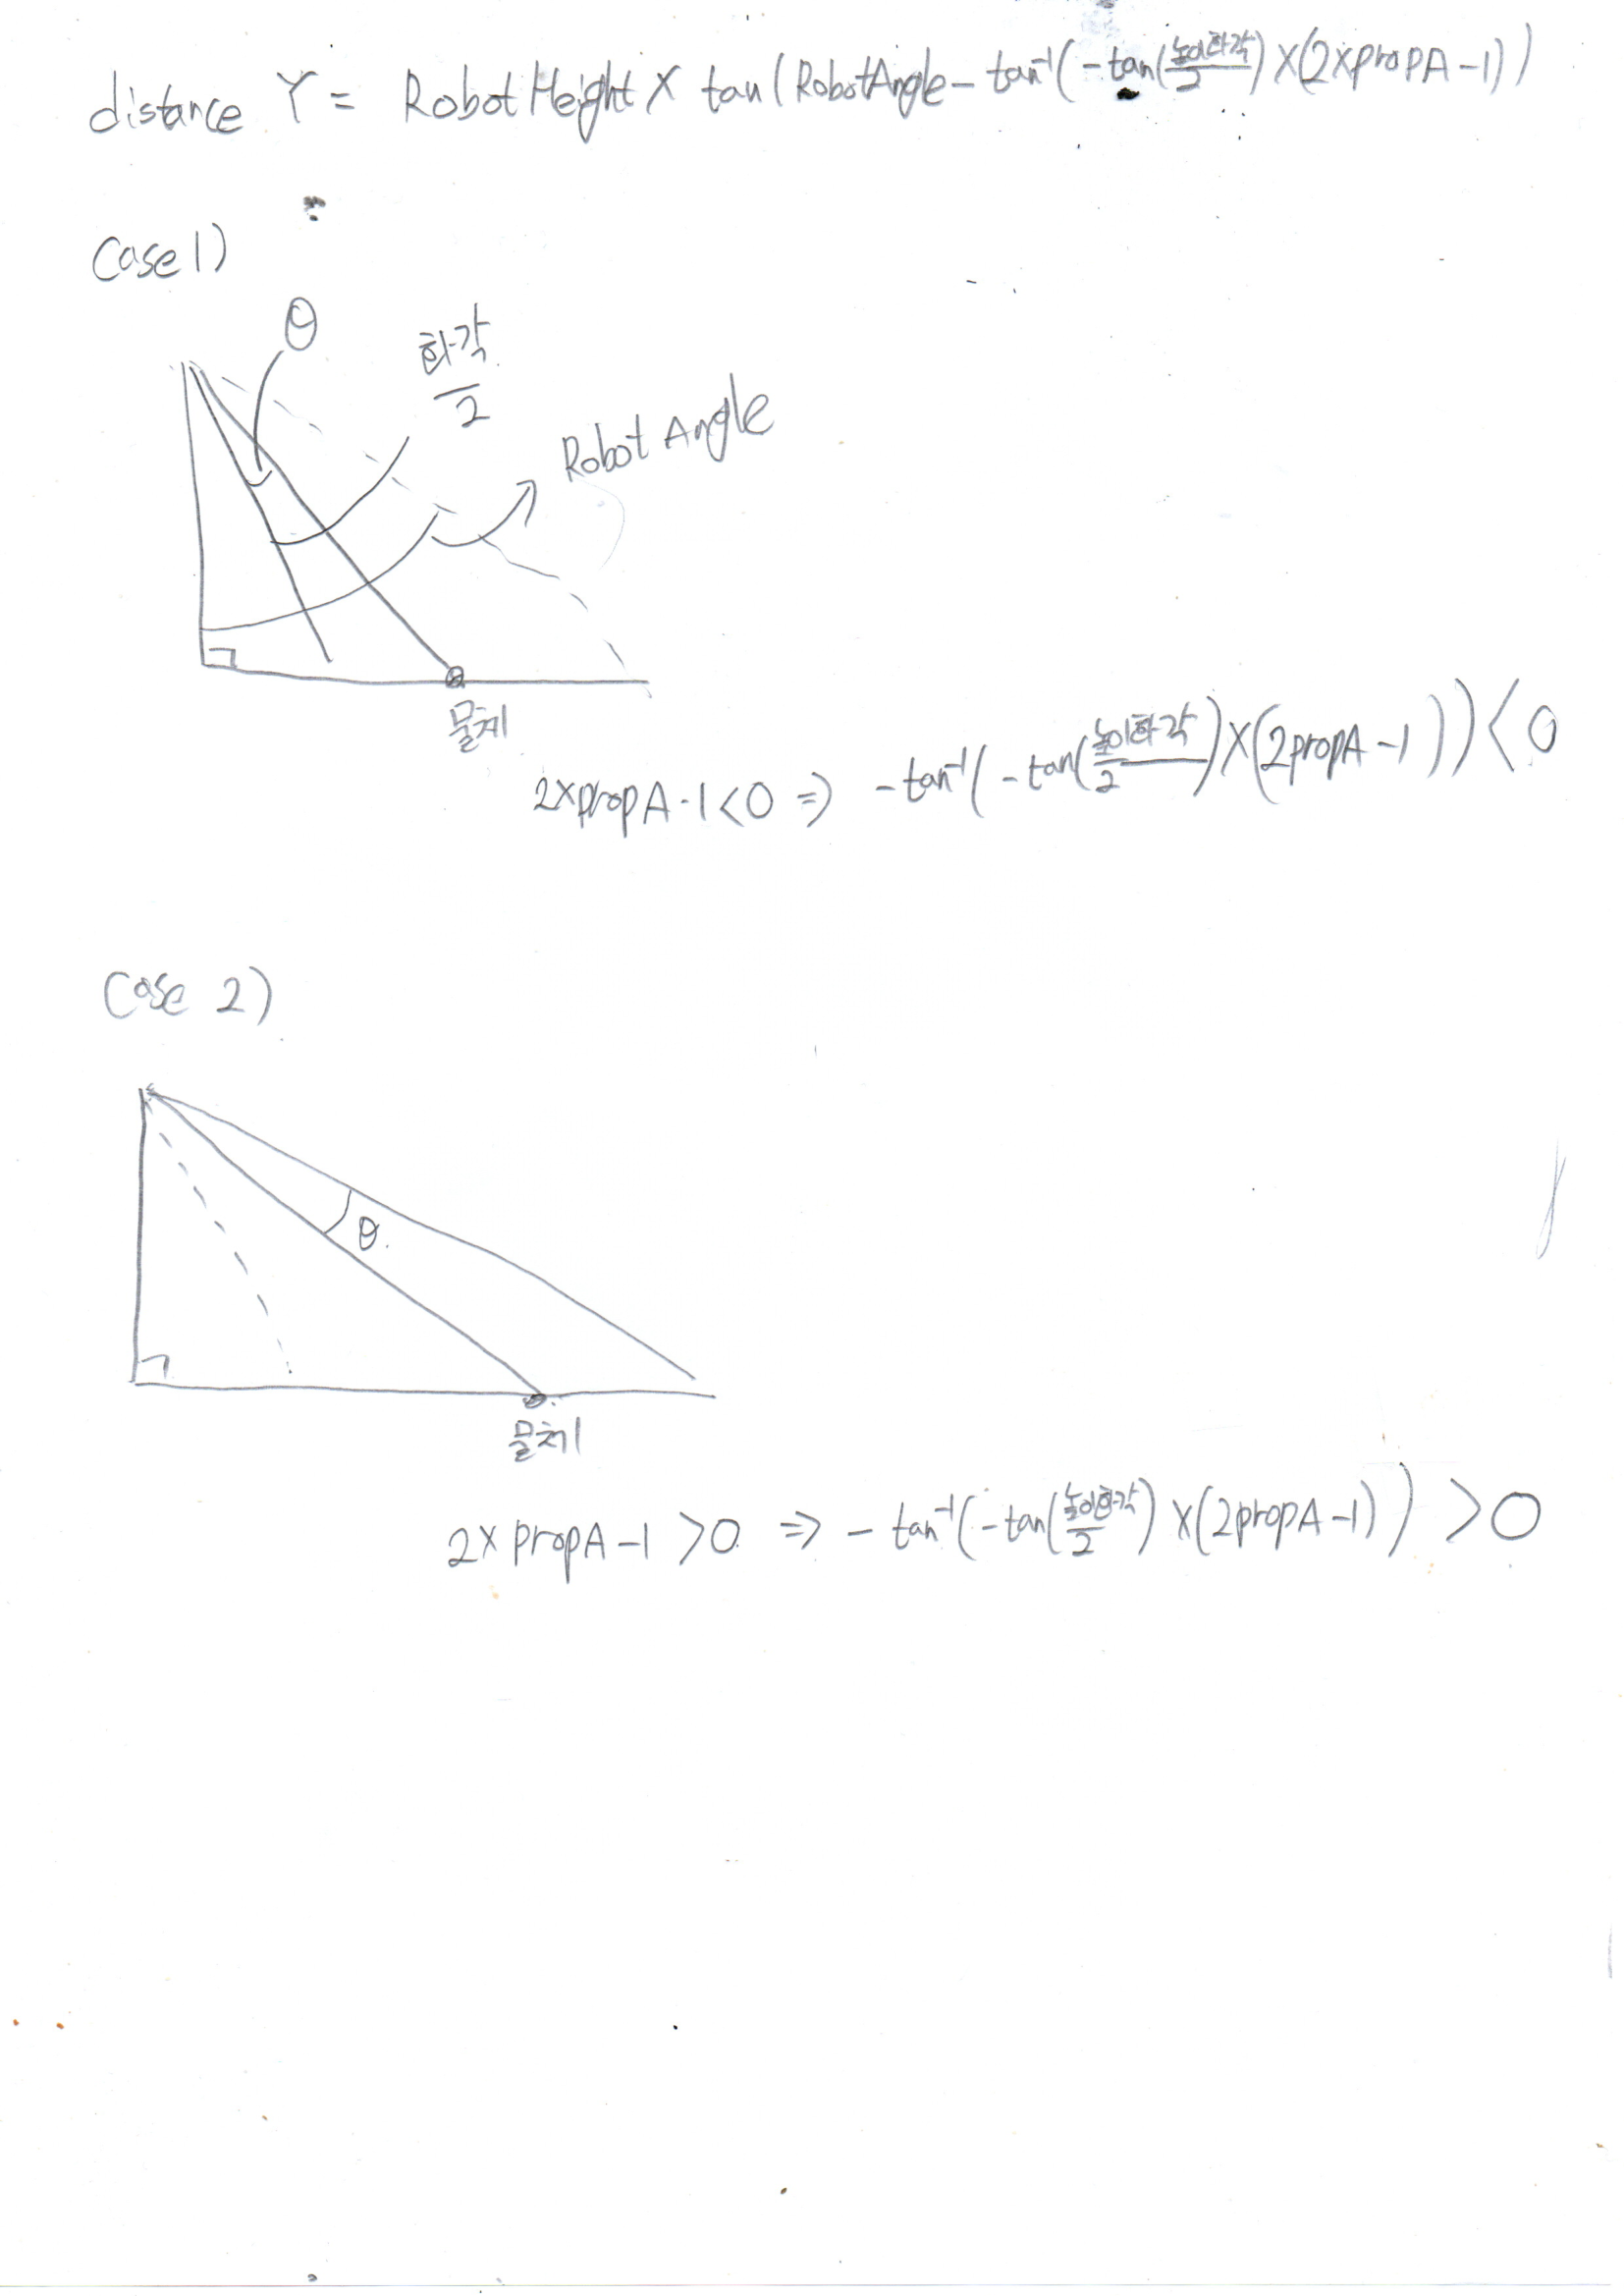 distance Y = RobotHeight X tan(RobotAngle - tan⁻¹(-tan(높이화각/2) X(2Xpropa A-1))
Case 1)
θ
화각/2
Robot Angle
물체
2Xprop A-1<0 ⇒ -tan⁻¹(-tan(높이화각/2)X(2propA-1)))<0
Case 2)
θ.
물체
2X propA-1 >0 ⇒ -tan⁻¹(-tan(높이화각/2) X(2propA-1)) >0